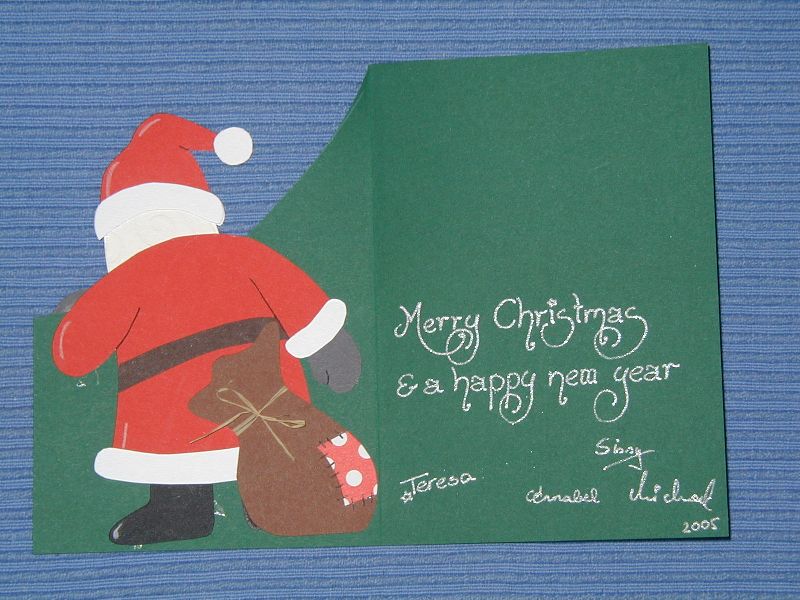 Merry Christmas
& a happy new year
Sissy
Teresa Annabel Michael
2005